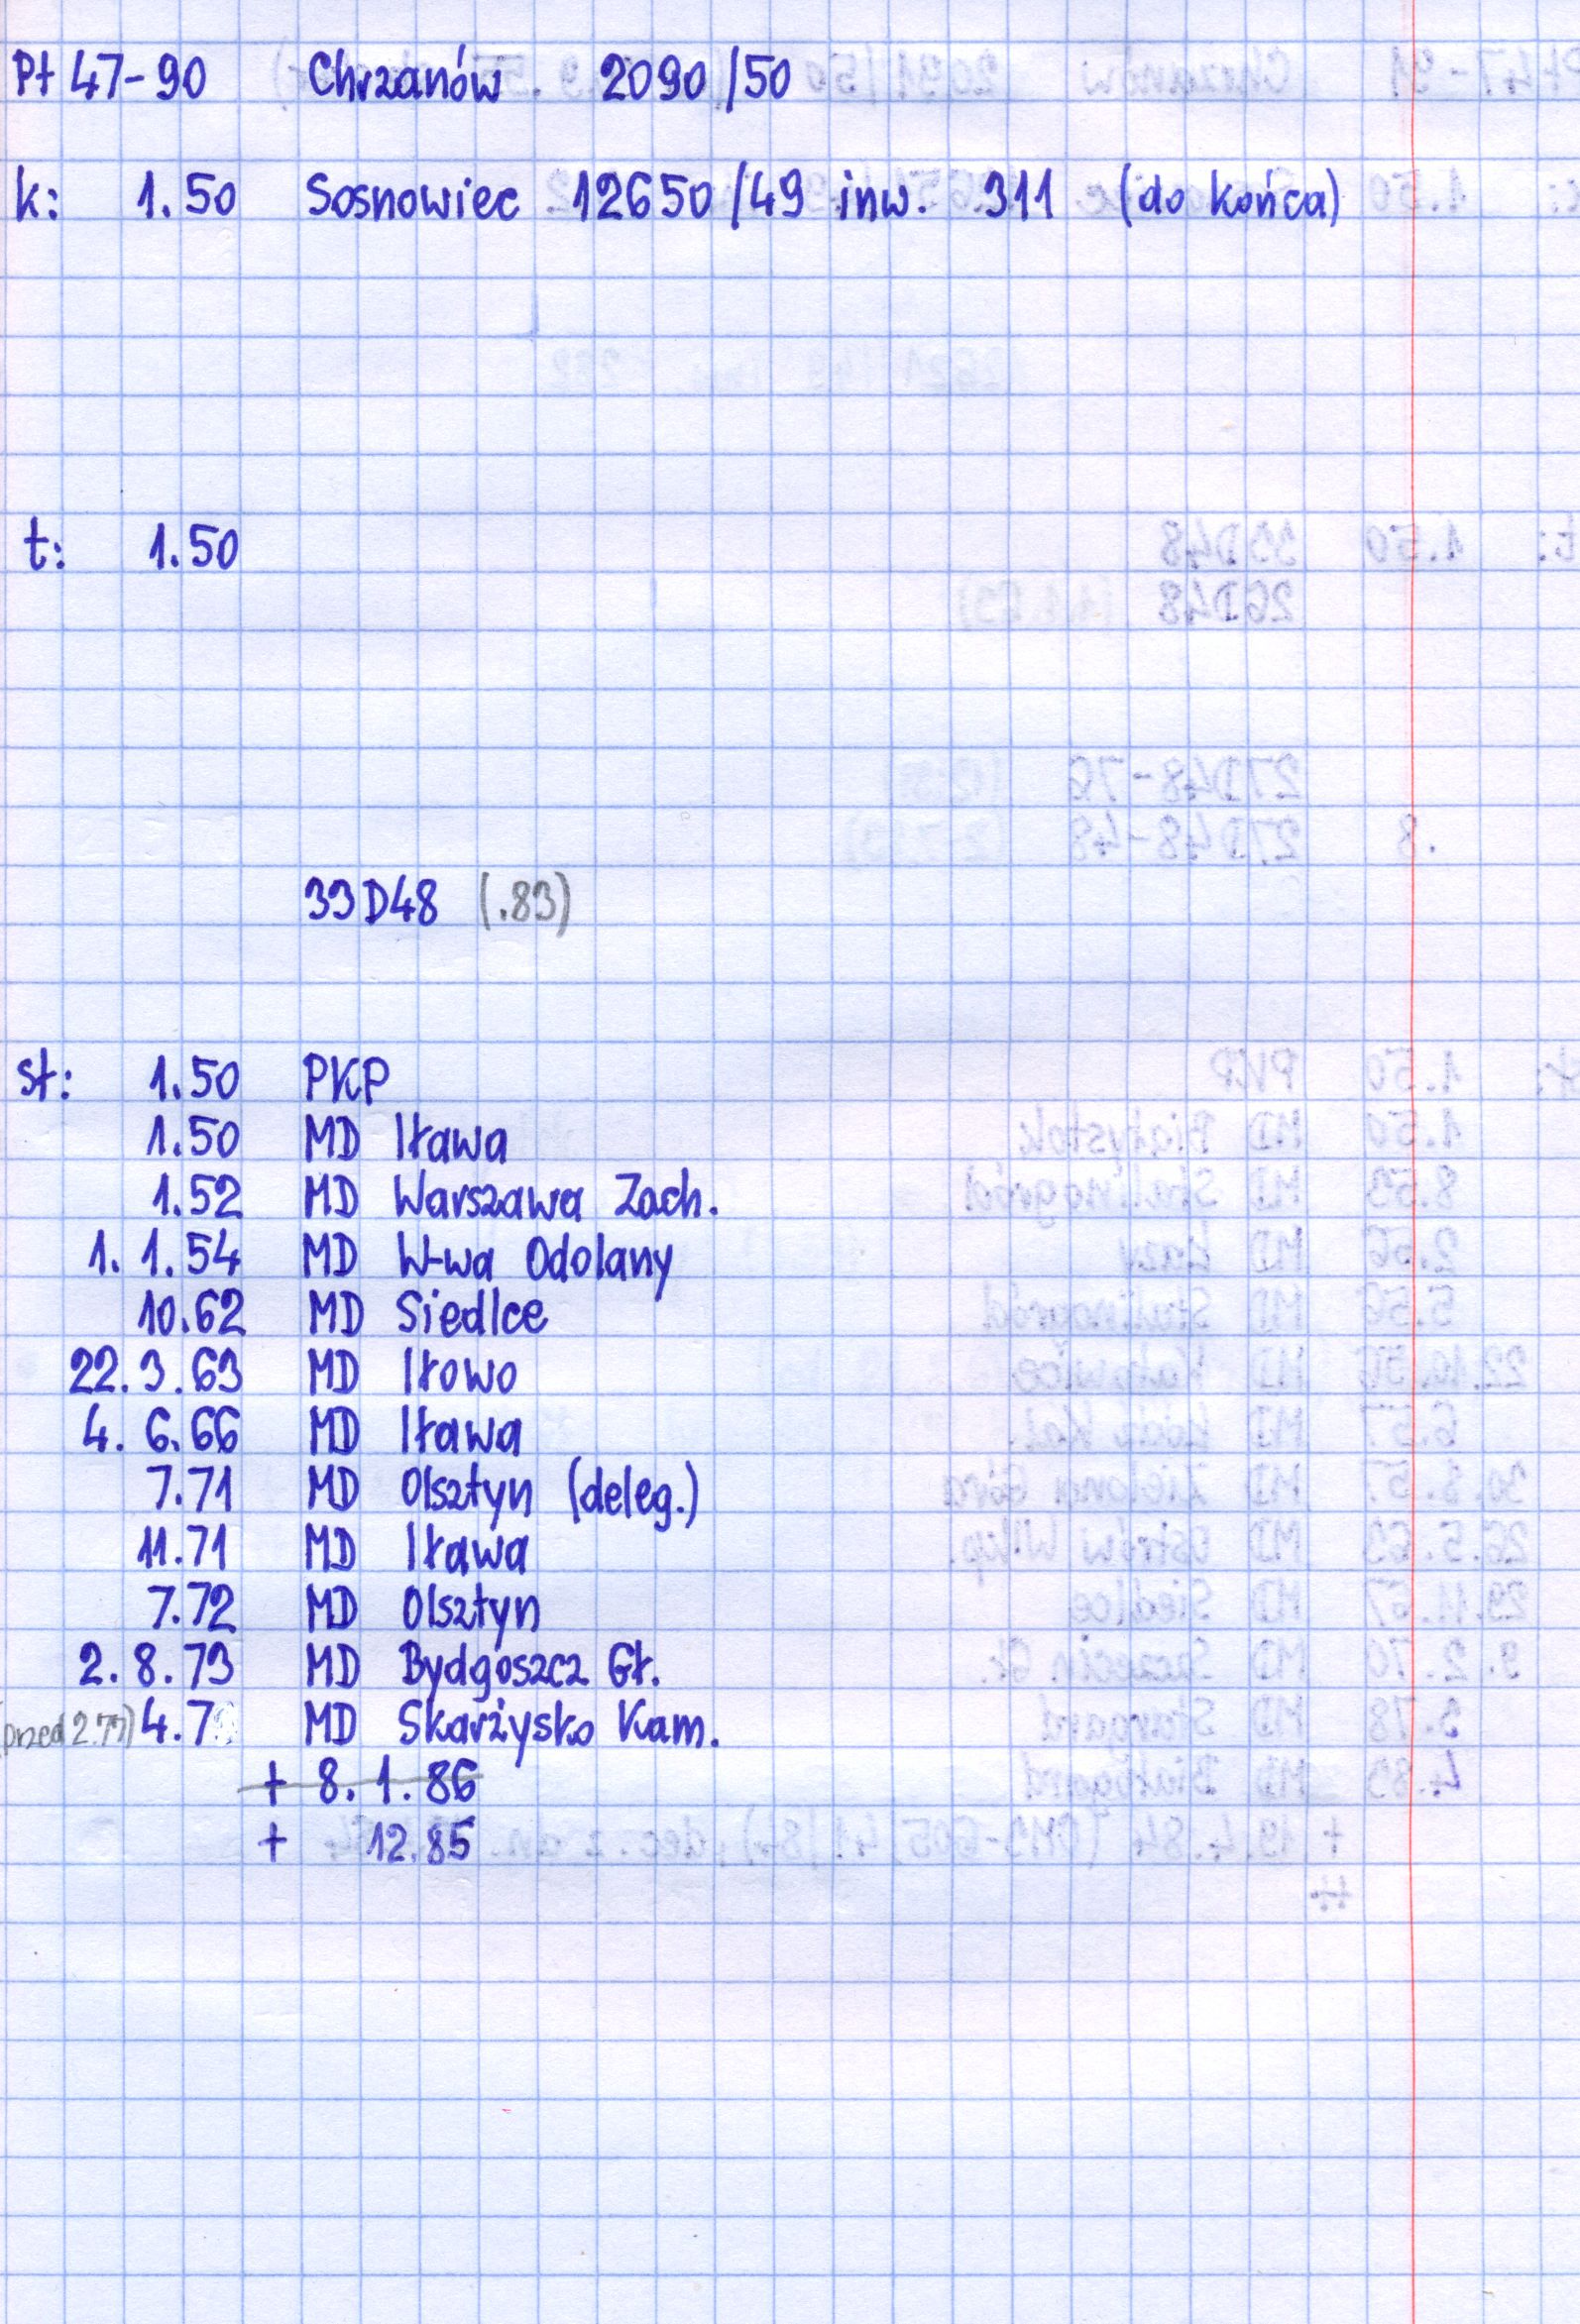 Pt 47-90 Chrzanów 2090/50
k: 1.50 Sosnowiec 12650/49 inw. 311 (do końca)
t: 1.50
33D48 (.83)
st: 1.50 PKP
1.50 MD Iława
1.52 MD Warszawa Zach.
1. 1.54 MD W-wa Odolany
10.62 MD Siedlce
22. 3. 63 MD Iłowo
4. 6. 66 MD Iława
7.71 MD Olsztyn (deleg.)
11.71 MD Iława
7.72 MD Olsztyn
2. 8. 73 MD Bydgoszcz Gł.
(przed 2.77) 4.7 MD Skarżysko Kam.
+ 8. 1. 86
+ 12.85